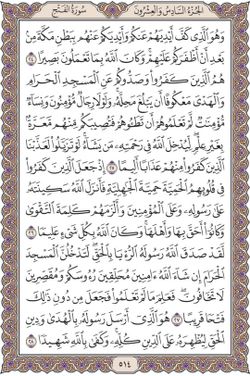 الجُزْءُ السَّادِسُ وَالْعِشْرُونَ سُورَةُ الفَتْحِ
وَهُوَ ٱلَّذِي كَفَّ أَيْدِيَهُمْ عَنكُمْ وَأَيْدِيَكُمْ عَنْهُم بِبَطْنِ مَكَّةَ مِنۢ
بَعْدِ أَنْ أَظْفَرَكُمْ عَلَيْهِمْ ۚ وَكَانَ ٱللَّهُ بِمَا تَعْمَلُونَ بَصِيرًا ٢٤
هُمُ ٱلَّذِينَ كَفَرُوا۟ وَصَدُّوكُمْ عَنِ ٱلْمَسْجِدِ ٱلْحَرَامِ
وَٱلْهَدْيَ مَعْكُوفًا أَن يَبْلُغَ مَحِلَّهُۥ ۚ وَلَوْلَا رِجَالٌ مُّؤْمِنُونَ وَنِسَآءٌ
مُّؤْمِنَٰتٌ لَّمْ تَعْلَمُوهُمْ أَن تَطَـُٔوهُمْ فَتُصِيبَكُم مِّنْهُم مَّعَرَّةٌۢ
بِغَيْرِ عِلْمٍ ۖ لِّيُدْخِلَ ٱللَّهُ فِي رَحْمَتِهِۦ مَن يَشَآءُ ۚ لَوْ تَزَيَّلُوا۟ لَعَذَّبْنَا
ٱلَّذِينَ كَفَرُوا۟ مِنْهُمْ عَذَابًا أَلِيمًا ٢٥ إِذْ جَعَلَ ٱلَّذِينَ كَفَرُوا۟
فِي قُلُوبِهِمُ ٱلْحَمِيَّةَ حَمِيَّةَ ٱلْجَٰهِلِيَّةِ فَأَنزَلَ ٱللَّهُ سَكِينَتَهُۥ
عَلَىٰ رَسُولِهِۦ وَعَلَى ٱلْمُؤْمِنِينَ وَأَلْزَمَهُمْ كَلِمَةَ ٱلتَّقْوَىٰ
وَكَانُوٓا۟ أَحَقَّ بِهَا وَأَهْلَهَا ۚ وَكَانَ ٱللَّهُ بِكُلِّ شَيْءٍ عَلِيمًا ٢٦
لَّقَدْ صَدَقَ ٱللَّهُ رَسُولَهُ ٱلرُّءْيَا بِٱلْحَقِّ ۖ لَتَدْخُلُنَّ ٱلْمَسْجِدَ
ٱلْحَرَامَ إِن شَآءَ ٱللَّهُ ءَامِنِينَ مُحَلِّقِينَ رُءُوسَكُمْ وَمُقَصِّرِينَ
لَا تَخَافُونَ ۖ فَعَلِمَ مَا لَمْ تَعْلَمُوا۟ فَجَعَلَ مِن دُونِ ذَٰلِكَ
فَتْحًا قَرِيبًا ٢٧ هُوَ ٱلَّذِيٓ أَرْسَلَ رَسُولَهُۥ بِٱلْهُدَىٰ وَدِينِ
ٱلْحَقِّ لِيُظْهِرَهُۥ عَلَى ٱلدِّينِ كُلِّهِۦ ۚ وَكَفَىٰ بِٱللَّهِ شَهِيدًا ٢٨
٥١٤